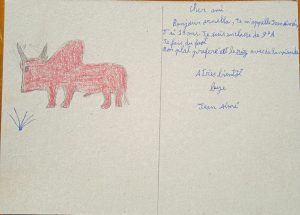 Cher ami
Bonjour ornella, Je m'appelle Jean Aimé,
J'ai 13 ans Je suis en classe de 9ᵉ A
Je fais du foot
Mon plat préféré est le riz avec de la viande
A très bientôt
bisye
Jean Aimé